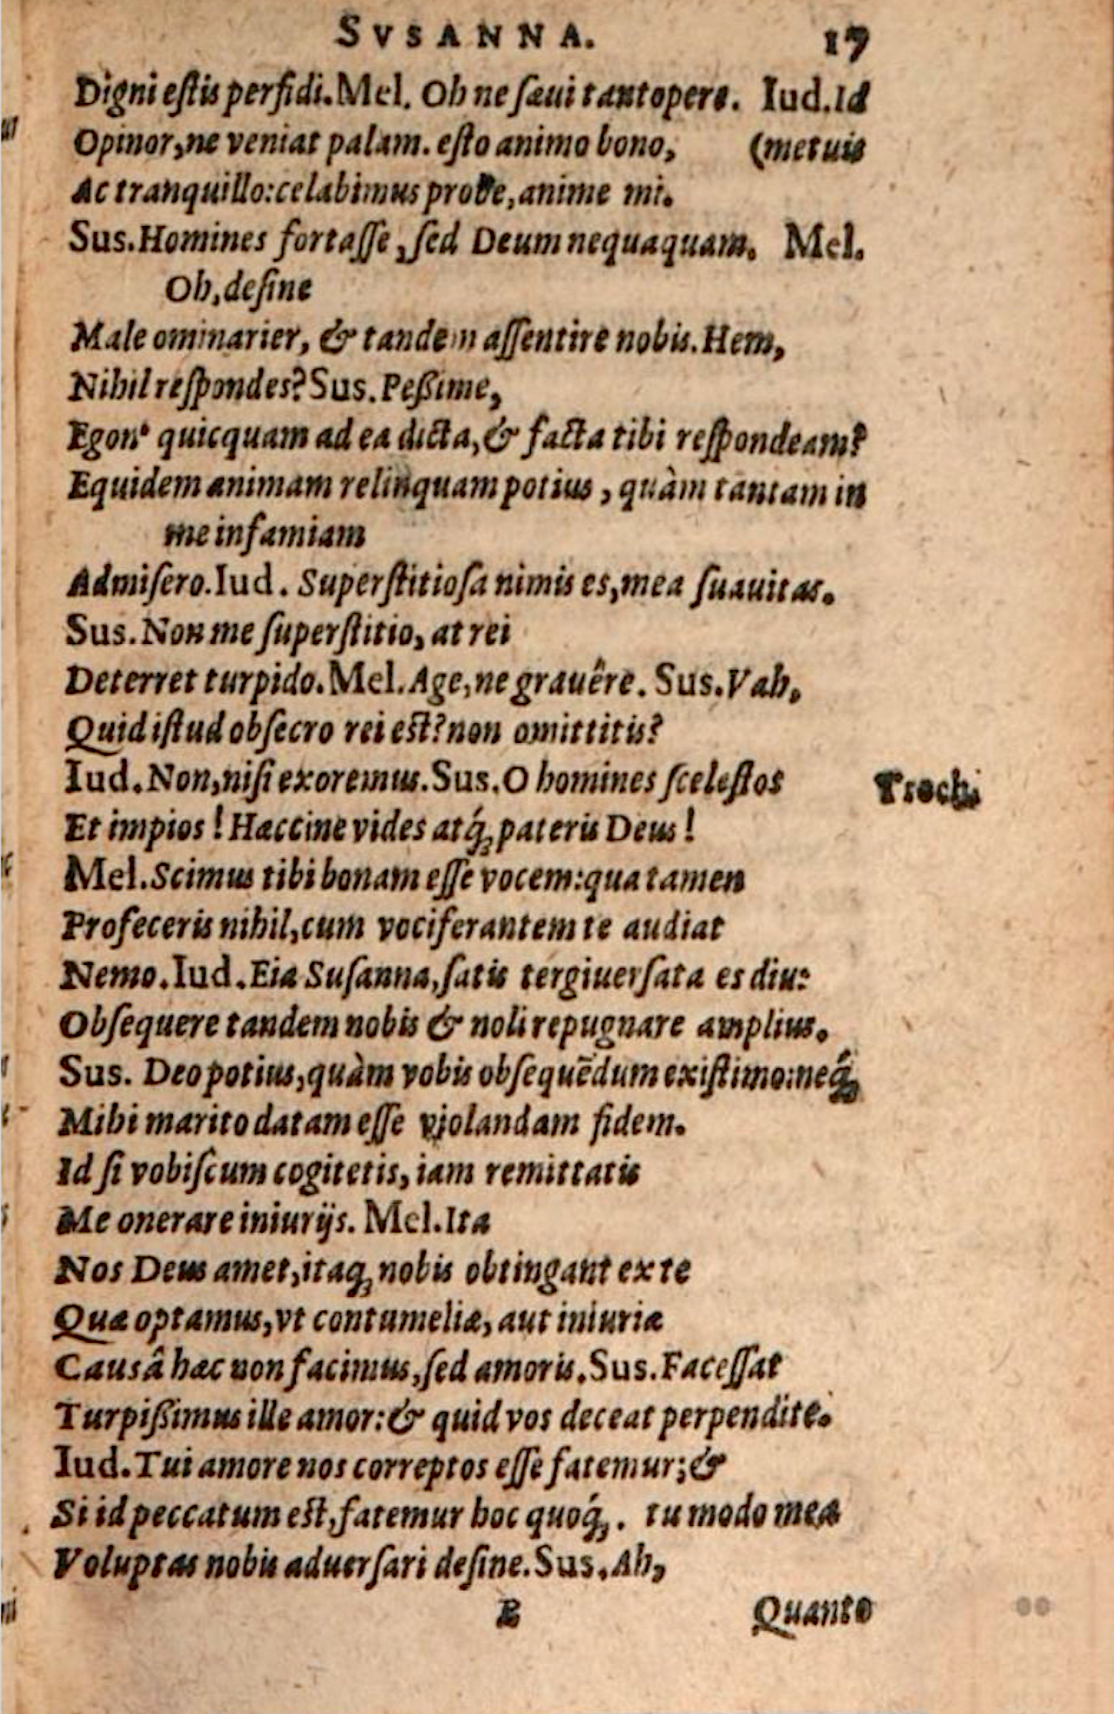 SVSANNA. 17
Digni eſtis perfidi. Mel. Oh ne ſæui tantopere. Iud. Id
Opinor, ne veniat palam. eſto animo bono, (metuis
Ac tranquillo: celabimus probe, anime mi.
Sus. Homines fortaſſe, ſed Deum nequaquam. Mel.
Oh, deſine
Male ominarier, & tandem aſſentire nobis. Hem,
Nihil reſpondes? Sus. Peßime,
Egon' quicquam ad ea dicta, & facta tibi reſpondeam?
Equidem animam relinquam potius, quàm tantam in
me infamiam
Admiſero. Iud. Superſtitioſa nimis es, mea ſuauitas.
Sus. Non me ſuperſtitio, at rei
Deterret turpido. Mel. Age, ne grauêre. Sus. Vah,
Quid iſtud obſecro rei eſt? non omittitis?
Iud. Non, niſi exoremus. Sus. O homines ſceleſtos
Trochi
Et impios! Hæccine vides atq́; pateris Deus!
Mel. Scimus tibi bonam eſſe vocem: qua tamen
Profeceris nihil, cum vociferantem te audiat
Nemo. Iud. Eia Suſanna, ſatis tergiuerſata es diu:
Obſequere tandem nobis & noli repugnare amplius.
Sus. Deo potius, quàm vobis obſequēdum exiſtimo: neq́;
Mihi marito datam eſſe violandam fidem.
Id ſi vobiſcum cogitetis, iam remittatis
Me onerare iniurijs. Mel. Ita
Nos Deus amet, itaq; nobis obtingant ex te
Quæ optamus, vt contumeliæ, aut iniuriæ
Causâ hæc non facimus, ſed amoris. Sus. Faceſſat
Turpißimus ille amor: & quid vos deceat perpendite.
Iud. Tui amore nos correptos eſſe fatemur; &
Si id peccatum eſt, fatemur hoc quoq́;. tu modo mea
Voluptas nobis aduerſari deſine. Sus. Ah,
B Quanto